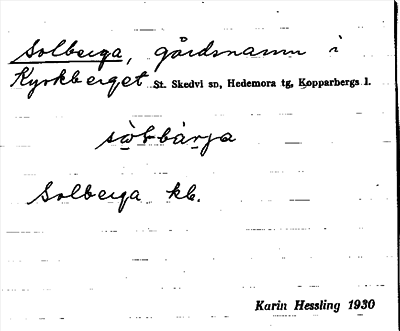 Solberga, gårdsnamn i
Kyrkberget St. Skedvi sn, Hedemora tg, Kopparbergs l.
Solberga kb.
Karin Hessling 1930